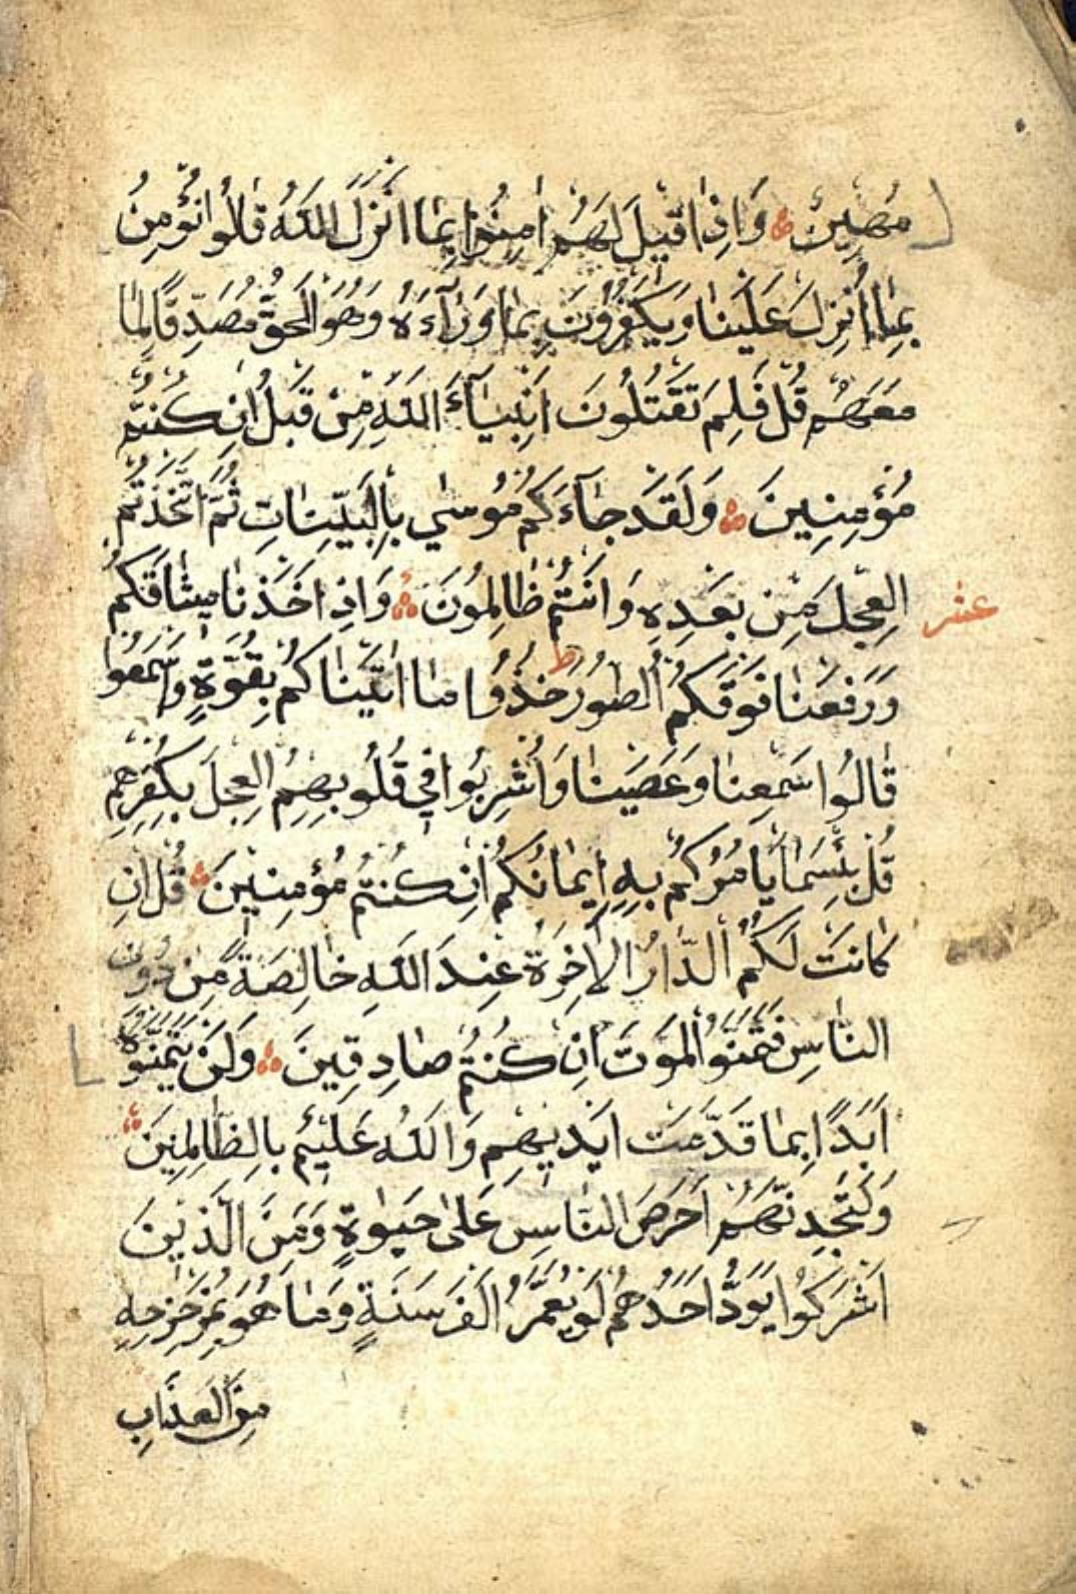 مُهِينٌ وَاِذَا قِيلَ لَهُمْ اٰمِنُوا بِمَا اَنْزَلَ اللّٰهُ قَالُوا نُؤْمِنُ
بِمَا اُنْزِلَ عَلَيْنَا وَيَكْفُرُونَ بِمَا وَرَآءَهُ وَهُوَ الْحَقُّ مُصَدِّقًا لِمَا
مَعَهُمْ قُلْ فَلِمَ تَقْتُلُونَ اَنْبِيَآءَ اللّٰهِ مِنْ قَبْلُ اِنْ كُنْتُمْ
مُؤْمِنِينَ وَلَقَدْ جَآءَكُمْ مُوسٰي بِالْبَيِّنَاتِ ثُمَّ اتَّخَذْتُمُ
الْعِجْلَ مِنْ بَعْدِهِ وَاَنْتُمْ ظَالِمُونَ وَاِذْ اَخَذْنَا مِيثَاقَكُمْ
عشر
وَرَفَعْنَا فَوْقَكُمُ الطُّورَ ط خُذُوا مَا اٰتَيْنَاكُمْ بِقُوَّةٍ وَاسْمَعُوا
قَالُوا سَمِعْنَا وَعَصَيْنَا وَاُشْرِبُوا فِي قُلُوبِهِمُ الْعِجْلَ بِكُفْرِهِمْ
قُلْ بِئْسَمَا يَاْمُرُكُمْ بِهِ اِيمَانُكُمْ اِنْ كُنْتُمْ مُؤْمِنِينَ قُلْ اِنْ
كَانَتْ لَكُمُ الدَّارُ الْاٰخِرَةُ عِنْدَ اللّٰهِ خَالِصَةً مِنْ دُونِ
النَّاسِ فَتَمَنَّوُا الْمَوْتَ اِنْ كُنْتُمْ صَادِقِينَ وَلَنْ يَتَمَنَّوْهُ
اَبَدًا بِمَا قَدَّمَتْ اَيْدِيهِمْ وَاللّٰهُ عَلِيمٌ بِالظَّالِمِينَ
وَلَتَجِدَنَّهُمْ اَحْرَصَ النَّاسِ عَلٰى حَيٰوةٍ وَمِنَ الَّذِينَ
اَشْرَكُوا يَوَدُّ اَحَدُهُمْ لَوْ يُعَمَّرُ اَلْفَ سَنَةٍ وَمَا هُوَ بِمُزَحْزِحِهِ
مِنَ الْعَذَابِ